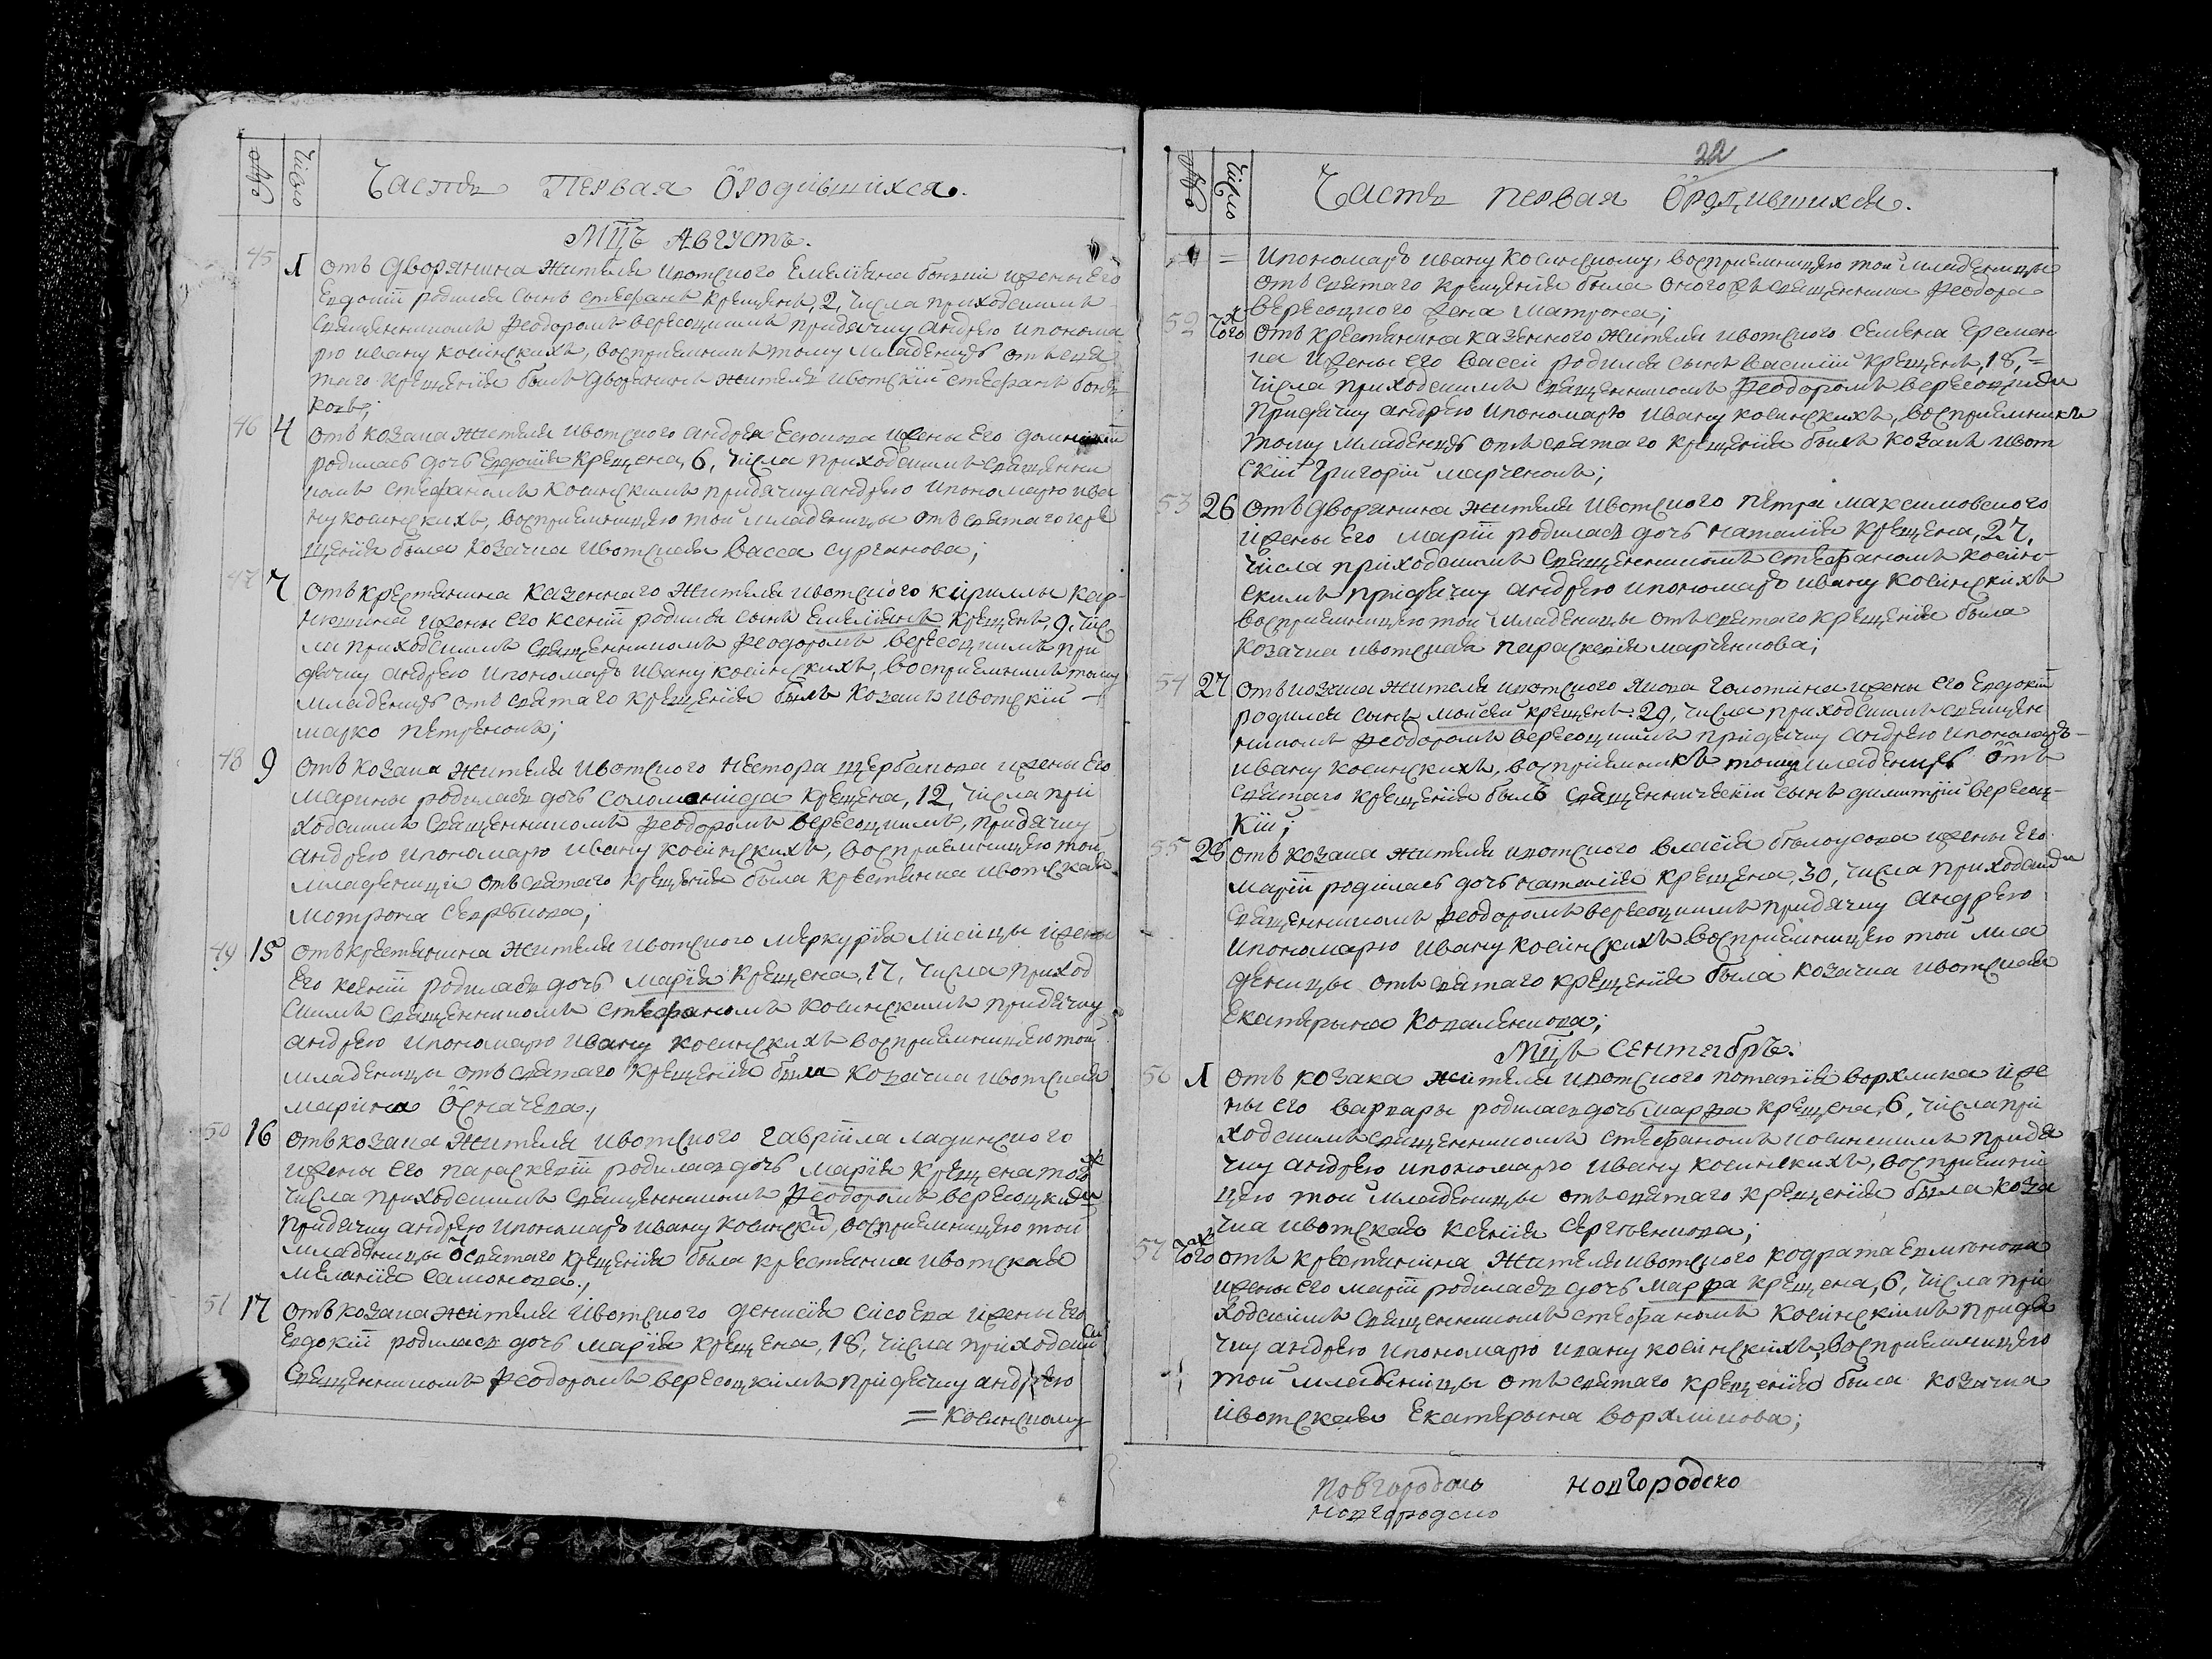 Число
Часть Первая О родившихся.
Мцъ Августъ.
45 1 Отъ дворянина жителя ивотского Емелiяна жены Его
Евдокiи родился сынъ стефанъ крещенъ, 2, числа приходскимъ
священникомъ Феодоромъ вересоцкимъ при дячку андрею и понома
рю ивану косинскихъ, восприемникъ тому младенцу отъ свя
таго крещенiя былъ дворянинъ житель ивотскiй стефанъ
46 4 Отъ козака жителя ивотского андрея жены Его
родилась дочь Евдокiя крещена, 6, числа приходскимъ священни
комъ стефаномъ косинскимъ при дячку андрею и пономарю ива
ну косинскихъ, восприемницею той младеницы отъ святаго кре
щенiя была козачка ивотская Васса сурганова;
47 7 Отъ крестянина казеннаго жителя ивотского кириллы кар
нюшина жены его ксенiи родился сынъ Емелiянъ крещенъ, 9, чис
ла приходскимъ священникомъ Феодоромъ вересоцкимъ при
дячку андрею и пономарю ивану косинскихъ, восприемникъ тому
младенцу отъ святаго крещенiя былъ козакъ ивотскiй
марко петренокъ;
48 9 Отъ козака жителя ивотского нестора щербакова жены Его
марины родилась дочь соломонида крещена, 12, числа при
ходскимъ священникомъ Феодоромъ вересоцкимъ, при дячку
андрею и пономарю ивану косинскихъ, восприемницею той
младеници отъ святаго крещенiя была крестянка ивотская
мотрона
49 15 Отъ крестянина жителя ивотского меркурiя лисицы жены
Его ксенiи родилась дочь марiя крещена, 17, числа приход
скимъ священникомъ стефаномъ косинскимъ при дячку
андрею и пономарю ивану косинскихъ восприемницею той
младеницы отъ святаго крещенiя была козачка ивотская
марина Осначева;
50 16 Отъ козака жителя ивотского гаврiила ладинского
жены его параскевiи родилась дочь марiя крещена тогож
числа приходскимъ священникомъ Феодоромъ вересоцкимъ
при дячку андрею и пономарю ивану косинских, восприемницею той
младеницы о святаго крещенiя была крестянка ивотская
меланiя самонова;
51 17 Отъ козака жителя ивотского денисiя сисоева жены Его
Евдокiи родилась дочь марiя крещена, 18, числа приходским
священникомъ Феодоромъ вересоцкимъ при дячку андрею
= косинскому
22
Число
Часть первая О родившихся.
= и пономарю ивану косинскому, восприемницею той младеницы
отъ святаго крещенiя была оногожъ священника Феодора
вересоцкого жена матрона;
52 тогож Отъ крестянина казенного жителя ивотского семена еремен
ка жены его Вассы родился сынъ Василiй крещенъ, 18, =
числа приходскимъ священникомъ Феодоромъ вересоцкимъ
при дячку андрею и пономарю ивану косинскихъ, восприемникъ
тому младенцу отъ святаго крещенiя былъ козакъ ивот
скiй григорiй марченокъ;
53 26 Отъ дворянина жителя ивотского петра максимовского
жены Его марiи родилась дочь наталiя крещена, 27,
числа приходскимъ священникомъ стефаномъ косин
скимъ при дячку андрею и пономарю ивану косинскихъ
восприемницею той младеницы отъ святаго крещенiя была
козачка ивотская параскевiя марченкова;
54 27 Отъ козака жителя ивотского якова голотина жены его Евдокiи
родился сынъ мойсей крещенъ. 29, числа приходскимъ священ
никомъ Феодоромъ вересоцкимъ при дячку андрею и пономарю
ивану косинскихъ, восприемникъ тому младенцу отъ
святаго крещенiя былъ священническiй сынъ димитрiй вересоц
кiй;
55 28 Отъ козака жителя ивотского власiя белоусова жены Его
марiи родилась дочь наталiя крещена, 30, числа приходским
священникомъ Феодоромъ вересоцкимъ при дячку андрею
и пономарю ивану косинскихъ восприемницею той мла
деницы отъ святаго крещенiя была козачка ивотская
Екатерина коваленкова;
Мцъ Сентябръ.
56 1 Отъ козака жителя ивотского потапiя ворхлика же
ны его варвары родилась дочь марфа крещена, 6, числа при
ходскимъ священникомъ стефаномъ косинскимъ при дя
чку андрею и пономарю ивану косинскихъ, восприемни
цею той младеницы отъ святаго крещенiя была коза
чка ивотская ксенiя сергѣенкова;
57 тогож Отъ крестянина жителя ивотского кодрата
жены его марiи родилась дочь марфа крещена, 6, числа при
ходскимъ священникомъ стефаномъ косинскимъ при дя
чку андрею и пономарю ивану косинскихъ, восприемницею
той младеницы отъ святаго крещенiя была козачка
ивотская Екатерина ворхликова;
новгородско
новгородско